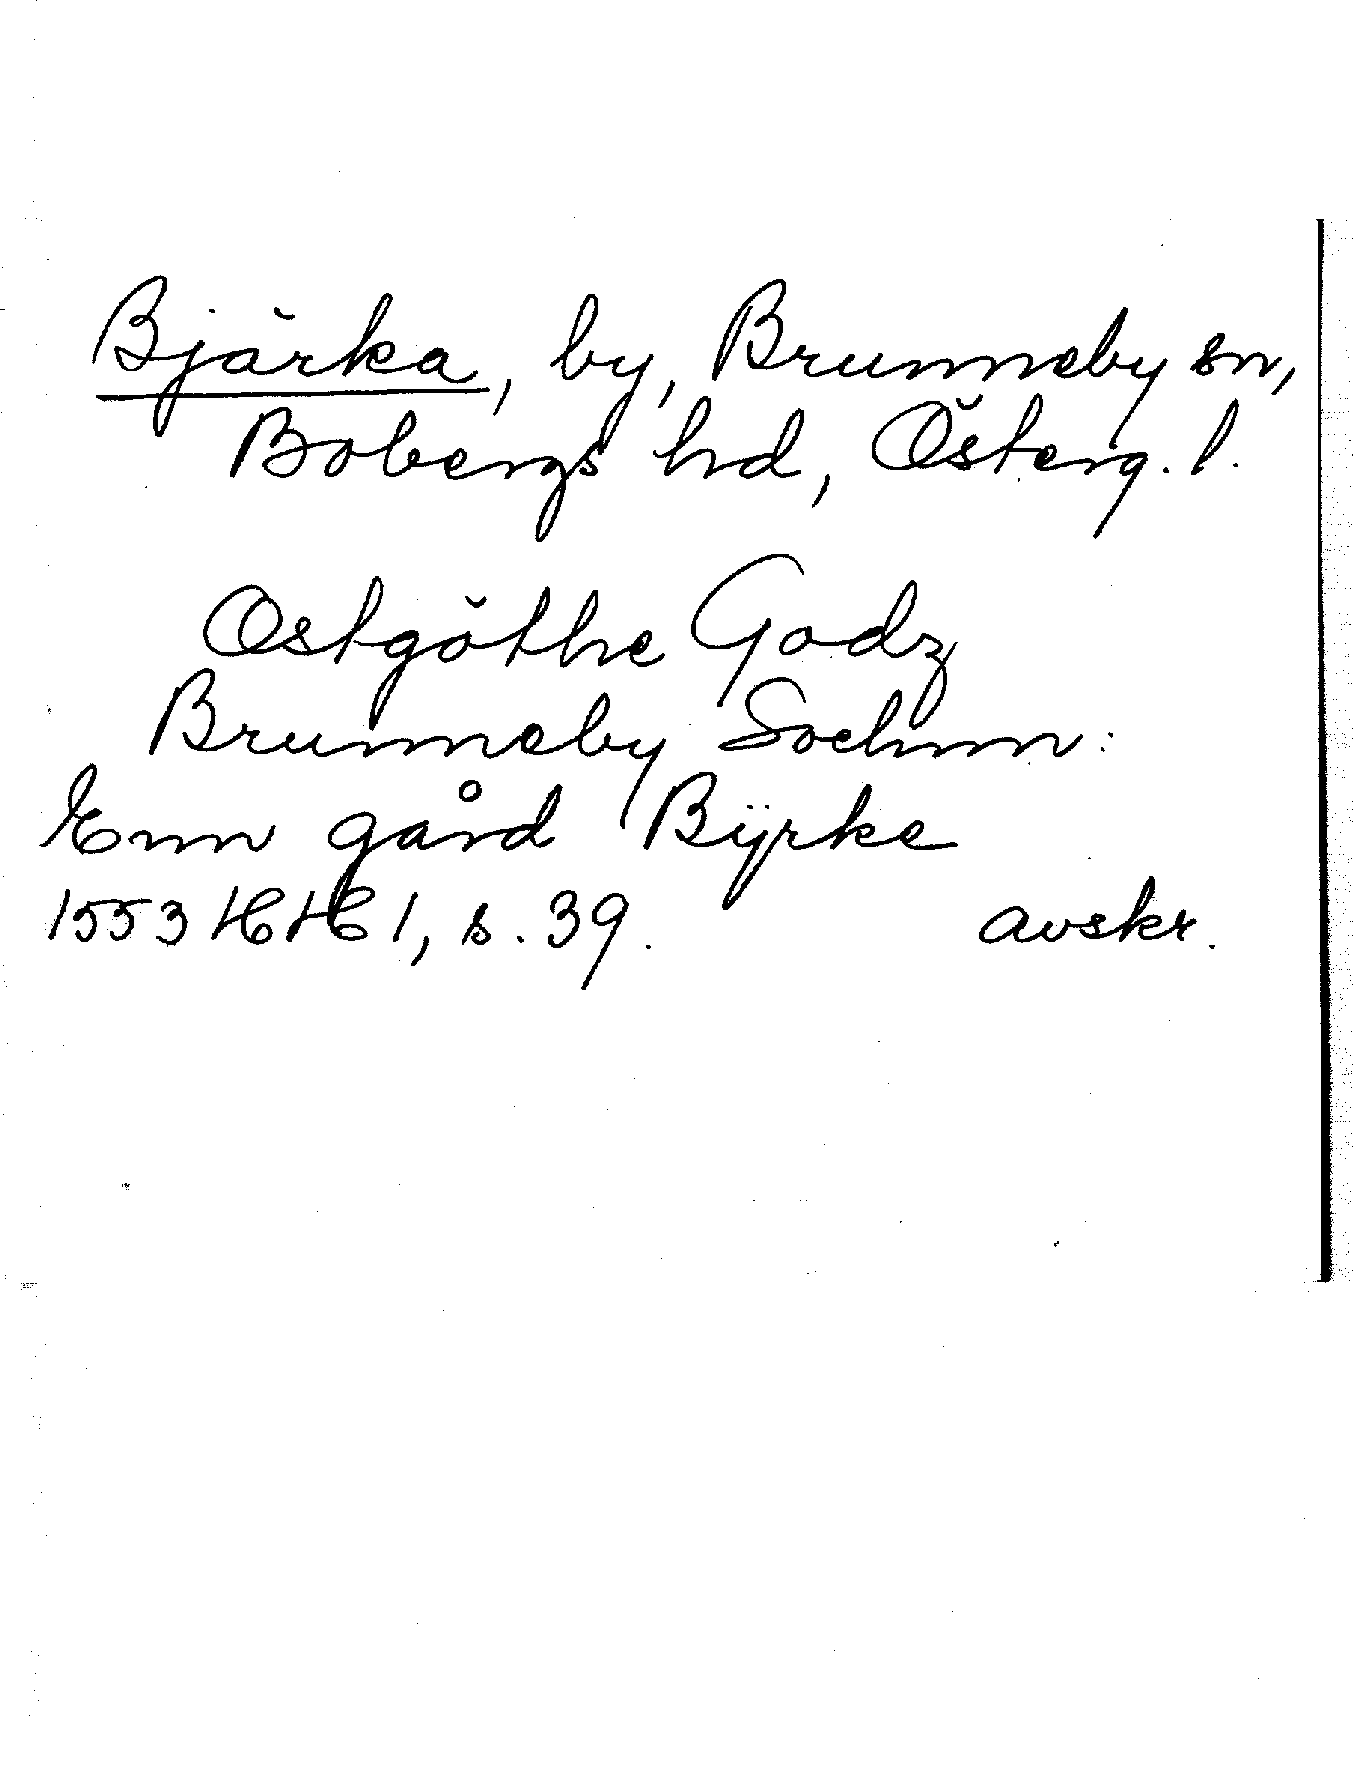 Bjärka, by, Brunneby sn,
Bobergs hd, Österg. l.
Östgöthe Godz
Brunneby Sochnn:
Enn gård Bÿrke
1553 HH 1, s. 39. avskr.